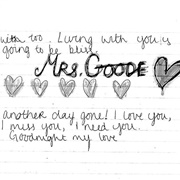 with too. Living with you is
going to be bliss.
Mrs. GOODE
another day gone! I love you,
I miss you, I need you.
Goodnight my love